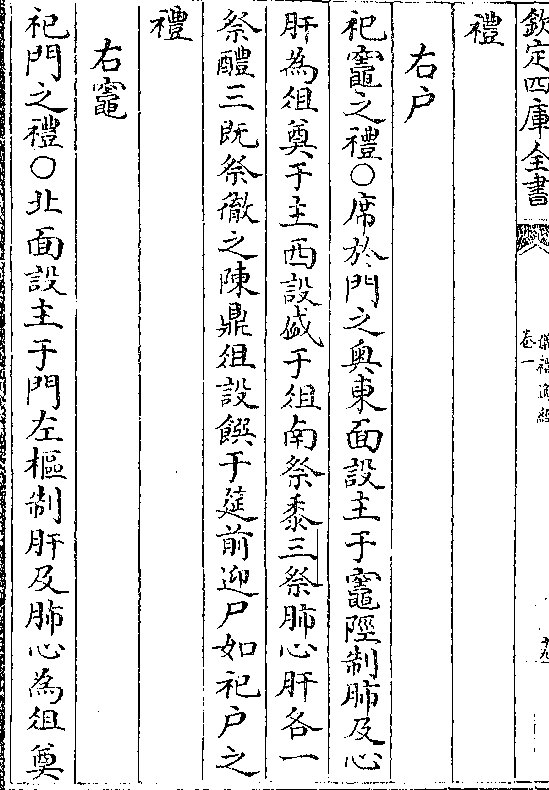 欽定四庫全書
卷一
禮
右户
祀竈之禮○席於門之奥東面設主于竈陘制肺及心
肝為俎奠于主西設盛于俎南祭黍三祭肺心肝各一
祭醴三既祭徹之陳鼎俎設饌于筵前迎尸如祀户之
禮
右竈
祀門之禮○北面設主于門左樞制肝及肺心為俎奠